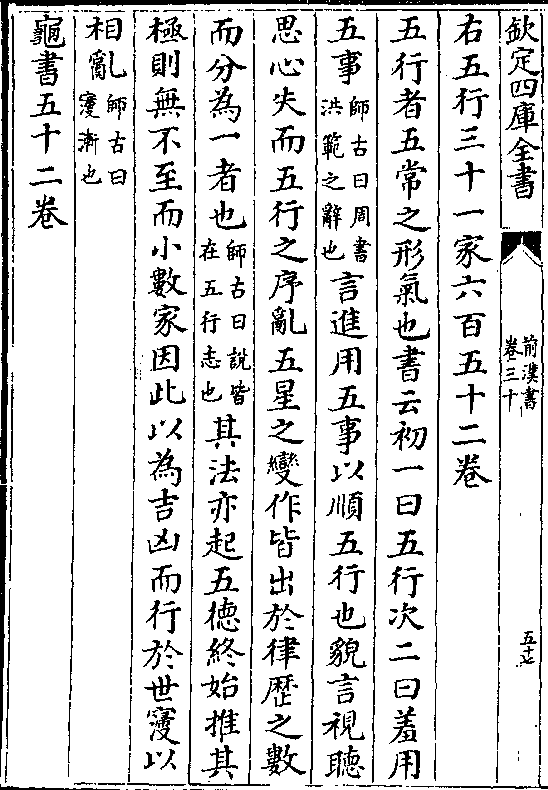 欽定四庫全書
前漢書
卷三十
五十七
右五行三十一家六百五十二卷
五行者五常之形氣也書云初一曰五行次二曰羞用
五事師古曰周書洪範之辭也言進用五事以順五行也貌言視聽
思心失而五行之序亂五星之變作皆出於律歷之數
而分為一者也師古曰說皆在五行志也其法亦起五德終始推其
極則無不至而小數家因此以為吉凶而行於世寖以
相亂師古曰寖漸也
龜書五十二卷